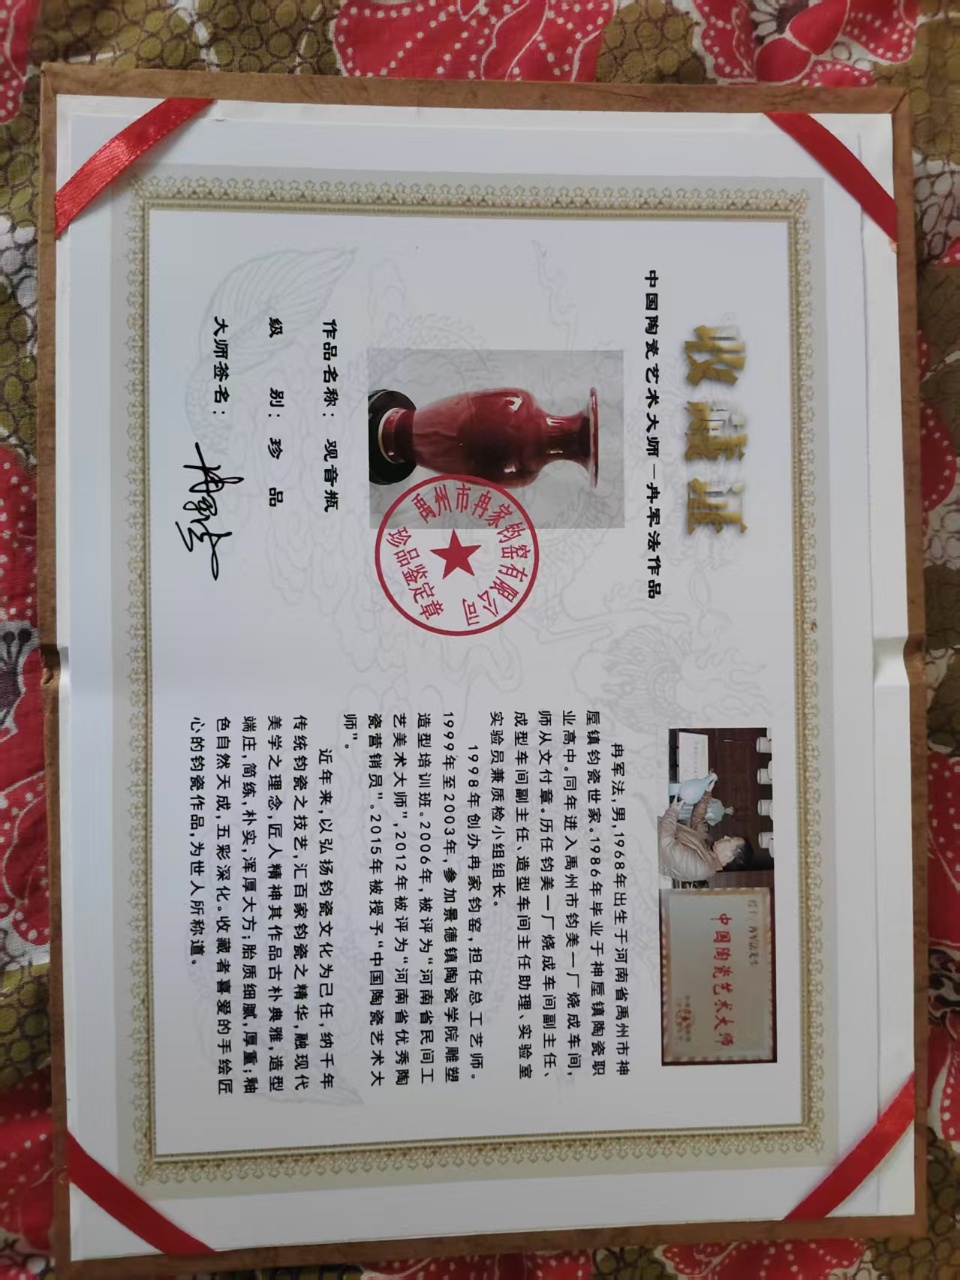 收藏证
中国陶瓷艺术大师—冉军法作品
禹州市冉家钧窑有限公司
珍品鉴定章
作品名称：观音瓶
级别：珍品
大师签名：
中国陶瓷艺术大师
冉军法，男，1968年出生于河南省禹州市神
垕镇钧瓷世家。1986年毕业于神垕镇陶瓷职
业高中。同年进入禹州市钧美一厂烧成车间，
师从文付章。历任钧美一厂烧成车间副主任、
成型车间副主任、造型车间主任助理、实验室
实验员兼质检小组组长。
1998年创办冉家钧窑，担任总工艺师。
1999年至2003年，参加景德镇陶瓷学院雕塑
造型培训班。2006年，被评为“河南省民间工
艺美术大师”，2012年被评为“河南省优秀陶
瓷营销员”。2015年被授予“中国陶瓷艺术大
师”。
近年来，以弘扬钧瓷文化为己任，纳千年
传统钧瓷之技艺，汇百家钧瓷之精华，融现代
美学之理念，匠人精神其作品古朴典雅，造型
端庄，简练，朴实，浑厚大方；胎质细腻，厚重；釉
色自然天成，五彩深化。收藏者喜爱的手绘匠
心的钧瓷作品，为世人所称道。